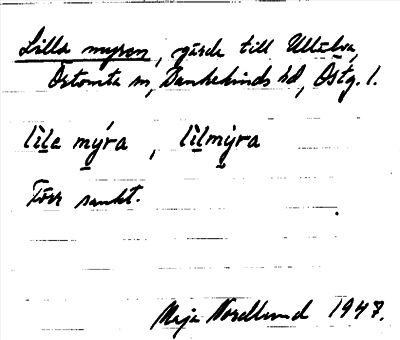 Lilla myran, gärde till Ullälva,
Örtomta sn, Bankekinds hd, Östg. l.
lìle mýra, lìlmýra
Förr sankt.
Maja Nordlund 1947.